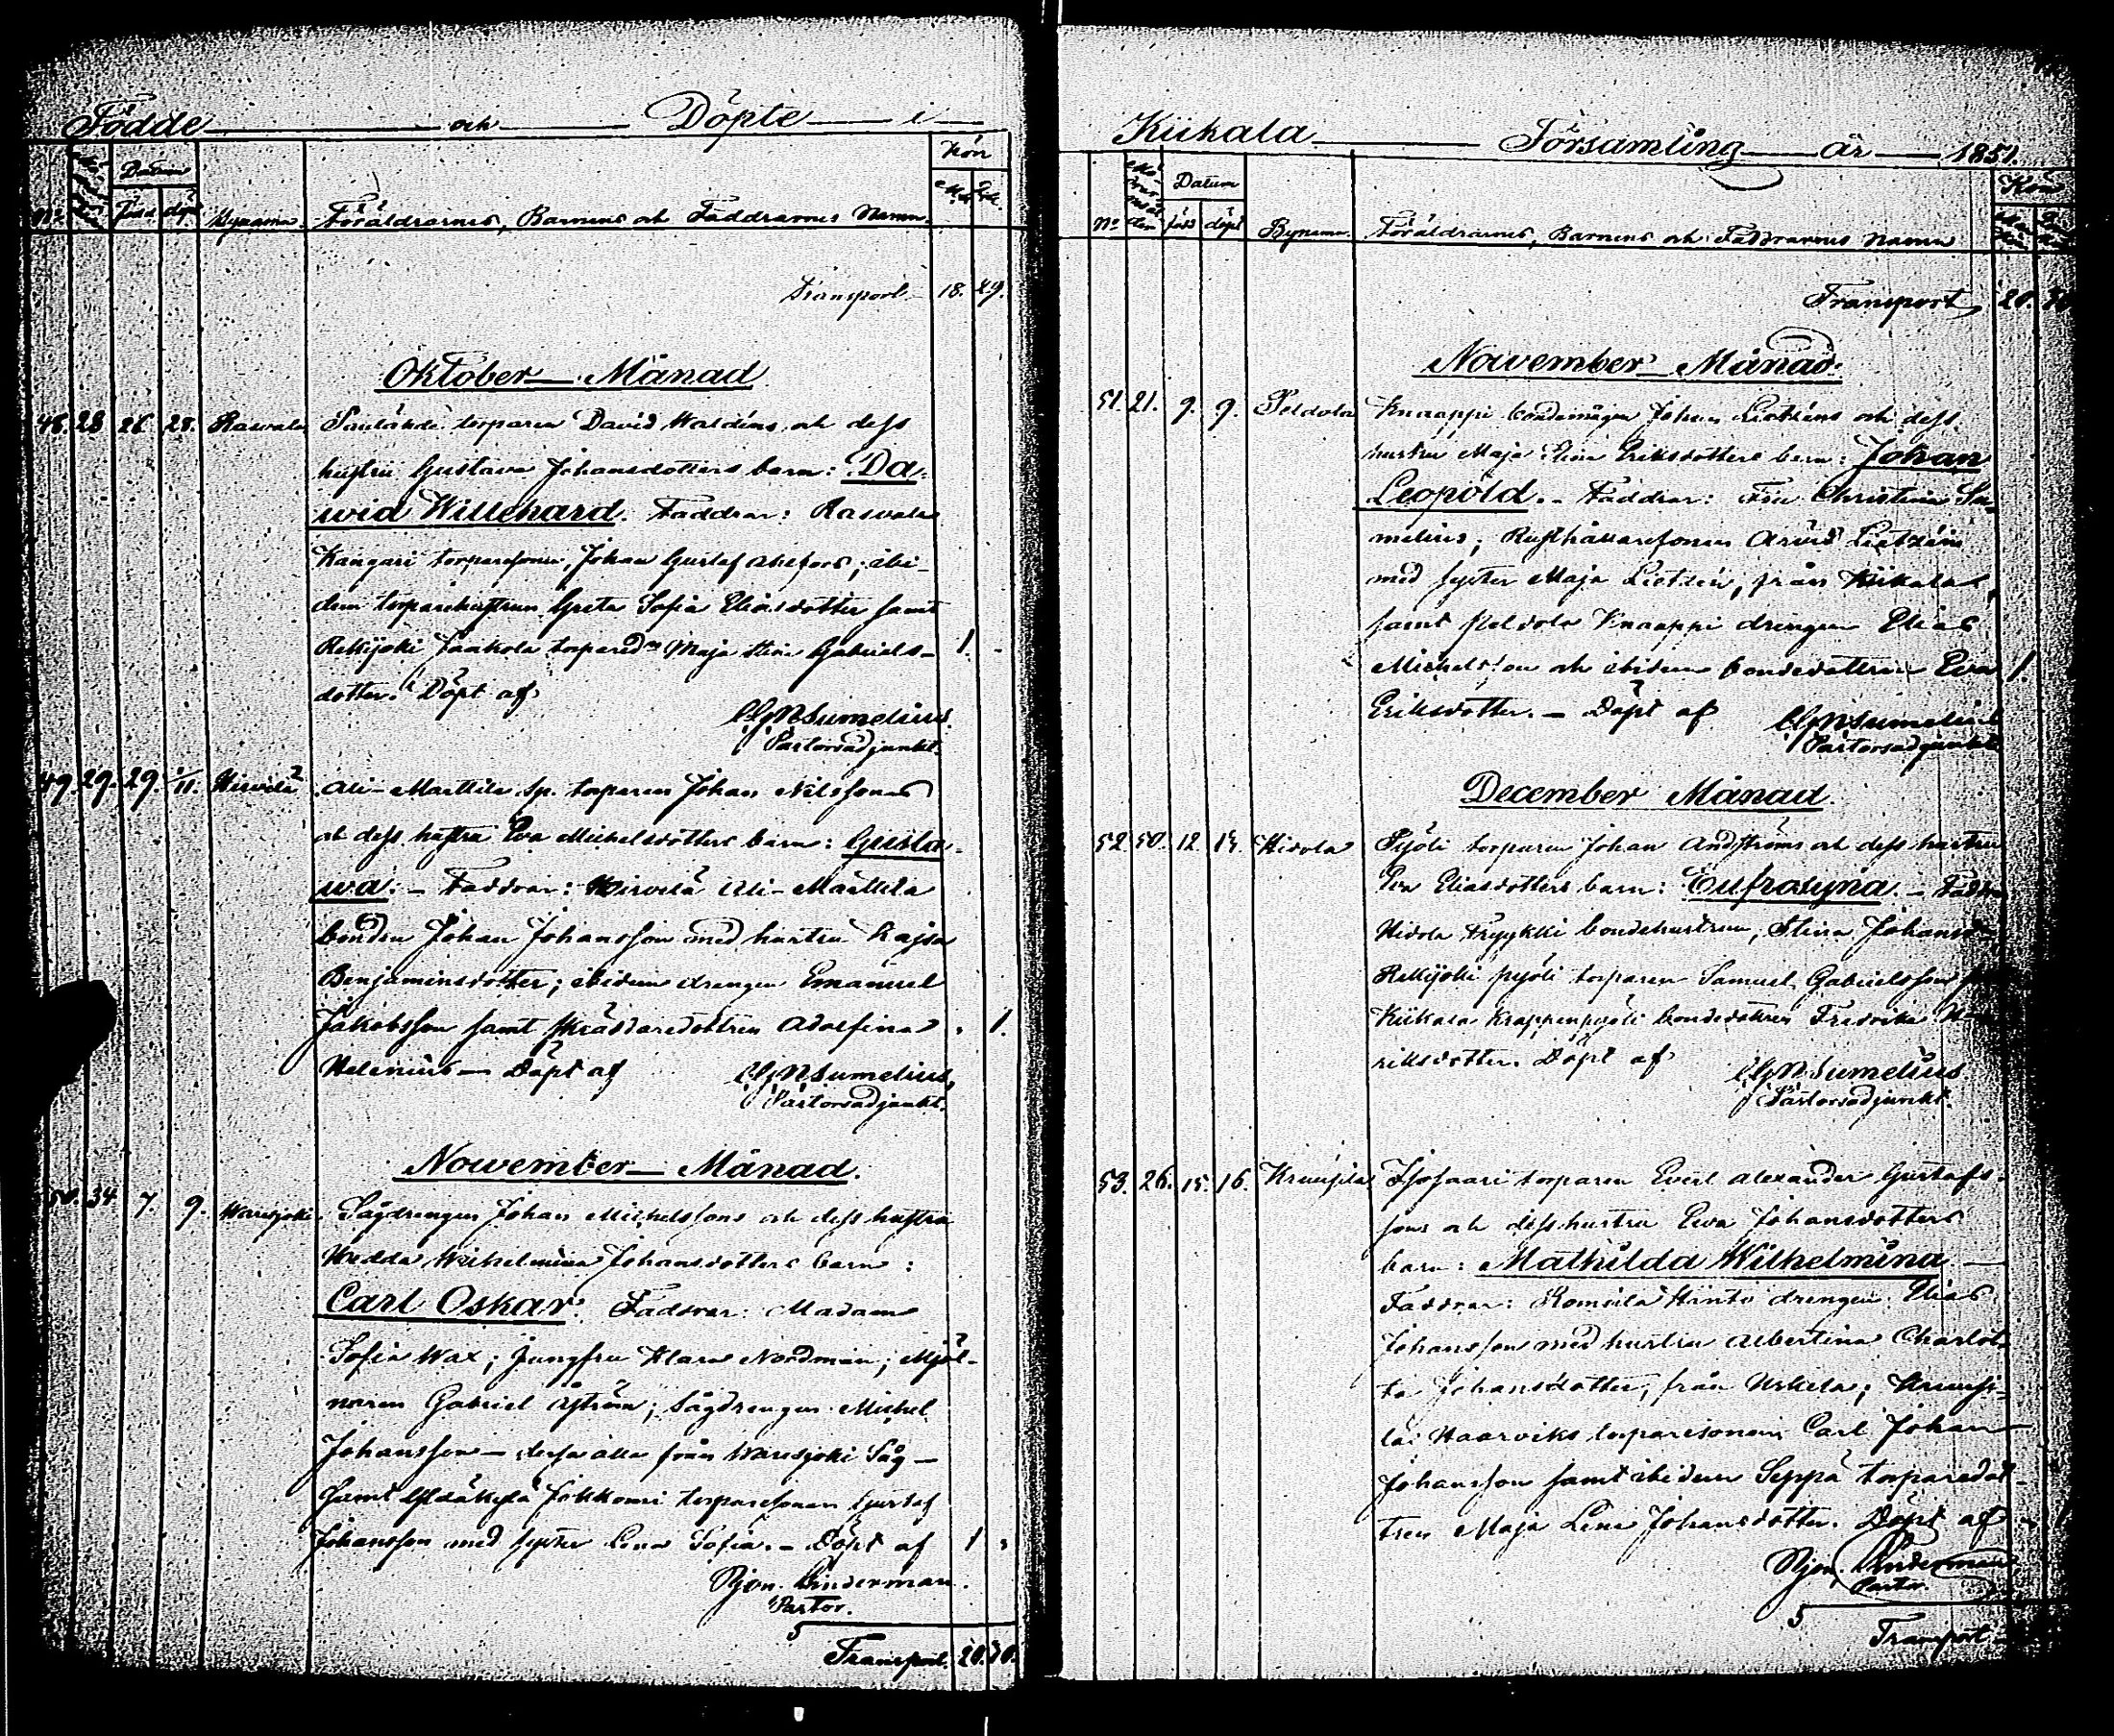 Födde och Döpte i
Kön
Datum
No född döpt Bynamn Föräldrarnes, Barnens och Faddrarnes Namn.
Transport 18. 29.
Oktober Månad
48. 28 26 28. Rasvala torparen David Waldéns och dess
hustru Gustava Johansdotters barn: Da-
wid Willehard. Faddrar: Rasvala
Kangari torparesonen, Johan Gustaf; ibi-
dem torparehustrun Greta Sofia Eliasdotter samt
Rekijoki Jaakola torpared:n Maja Stina Gabriels- 1. -
dotter. Döpt af
Sumelius.
Pastorsadjunkt.
49. 29. 29. 1/11. Hirvelä Ali-Marttila sp. torparen Johan Nilssons
och dess hustru Eva Michelsdotters barn: Gusta-
wa. - Faddrar: Hirvelä Ali-Marttila
bonden Johan Johansson med hustru Kajsa
Benjaminsdotter; ibidem drengen Emanuel
Jakobsson samt skräddaredottren Adolfina . 1.
Helenius - Döpt af Sumelius,
Pastorsadjunkt.
Nowember Månad.
50. 34. 7. 9. Warisjoki. Sågdrengen Johan Michelssons och dess hustru
Hedda Wilhelmina Johansdotters barn:
Carl Oskar. Faddrar: Madam
Sofia Wax; Jungfru Klara Nordman; Mjöl-
naren Gabriel Åström; Sågdrengen Michel
Johansson - dessa alla från Warisjoki Såg -
Samt Yltäkylä torparesonen Gustaf
Johansson med syster Lena Sofia. - Döpt af 1 .
Linderman.
Pastor.
5
Transport. 20. 30.
Kiikala Församling år 1851.
Kön
Datum
No född döpt Bynamn. Föräldrarnes, Barnens och Faddrarnes Namn
Transport 20. 30
Nowember Månad.
51. 21. 9. 9. Peldola Knaappi bondemågen Johan Lietzéns och dess
hustru Maja Stina Eriksdotters barn: Johan
Leopold. - Faddrar: Fru Christina Su-
melius; Rusthållaresonen Arvid Lietzén
med syster Maja Lietzén, från Kiikala,
samt Peldola Knaappi drengen Elias
Michelsson och ibidem bondedottren Eva 1.
Eriksdotter. - Döpt af Sumelius
Pastorsadjunkt
December Månad.
52. 50. 12. 14. Hidola Pyöli torparen Johan Andströms och dess hustru
Eva Eliasdotters barn: Eufrosyna. - Faddrar
Hidola Fryykki bondehustrun, Stina Johansd.
Rekijoki pyöli torparen Samuel Gabrielsson
Kiikala Krappenpyöli bondedottren Fredrika Hen-
riksdotter. Döpt af Sumelius
Pastorsadjunkt.
53. 26. 15. 16. Kruusila Isosaari torparen Evert Alexander Gustafs-
sons och dess hustru Eva Johansdotters
barn: Mathilda Wilhelmina -
Faddrar: Komsila Hinto drengen Elias
Johansson med hustru Albertina Charlot-
ta Johansdotter, från Uskela; Kruusi-
la: Haarviks torparesonen Carl Johan
Johansson samt ibidem Seppä torparedot-
tren Maja Lena Johansdotter. Döpt af
Linderman
Pastor.
5
Transport